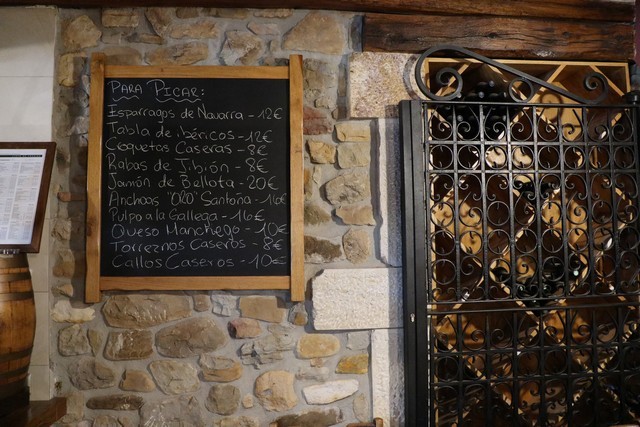 PARA PICAR:
Esparragos de Navarra - 12€
Tabla de ibéricos - 12€
Croquetas Caseras - 8€
Rabas de Jibión - 8€
Jamón de Bellota - 20€
Anchoas "ORO" Santoña - 16€
Pulpo a la Gallega - 16€
Queso Manchego - 10€
Torreznos Caseros - 8€
Callos Caseros - 10€